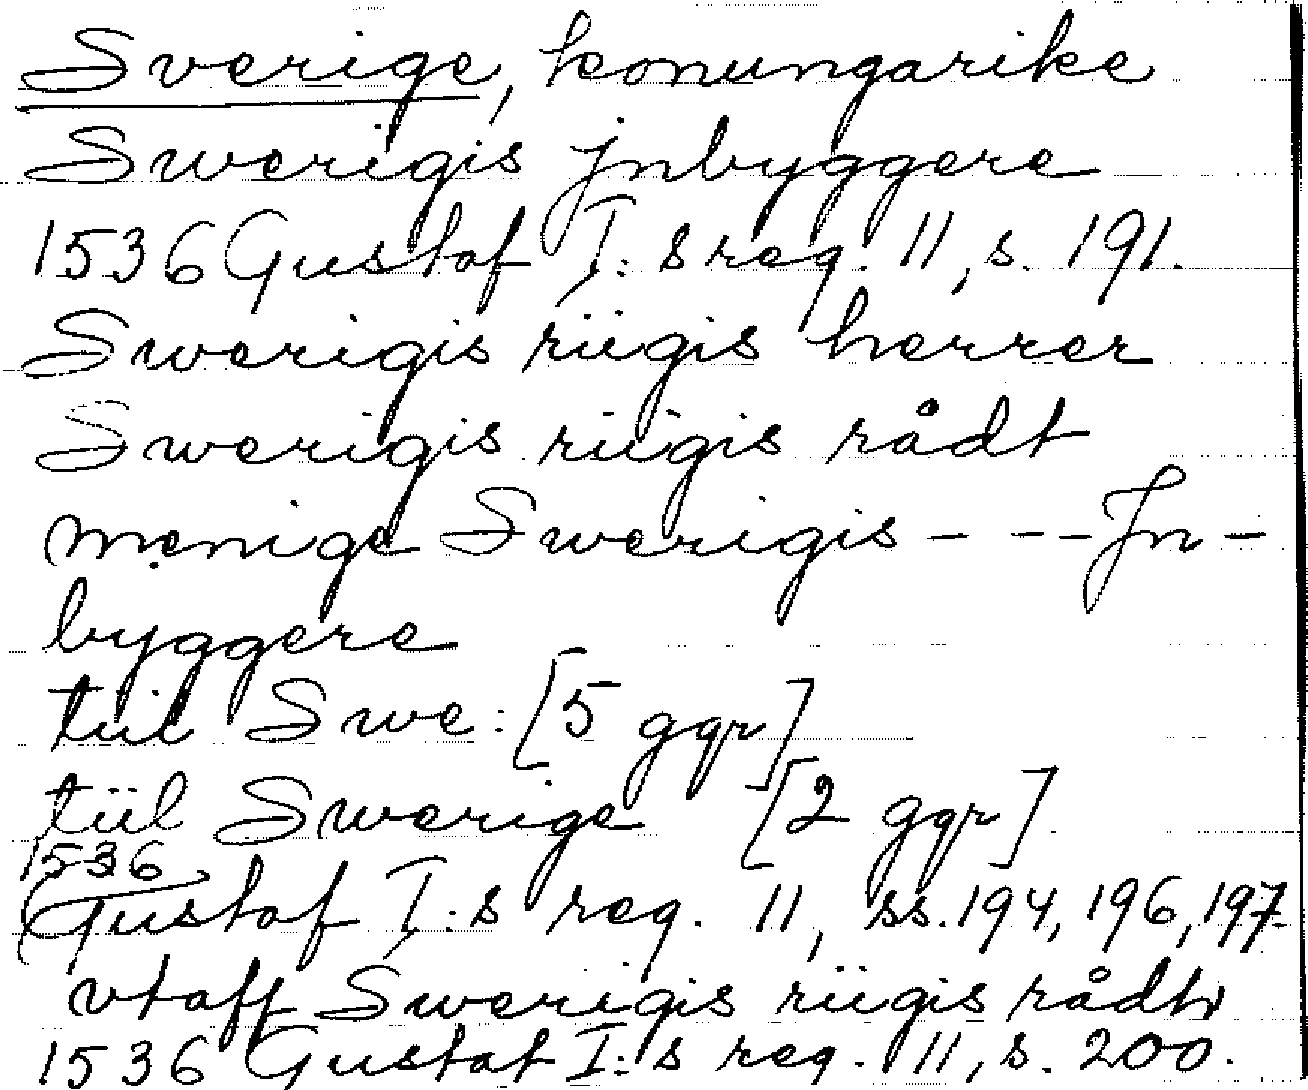 Sverige, konungarike
Swerigis jnbyggere
1536 Gustaf I:s reg. 11, s. 191.
Swerigis riigis herrer
Swerigis riigis rådt
menige Swerigis - --- Jn-
byggere
tiil Swe: [5 ggr]
tiil Swerige [2 ggr]
1536
Gustaf I:s reg. 11, ss. 194, 196, 197
vtaff Swerigis riigis rådh
1536 Gustaf I:s reg. 11, s. 200.